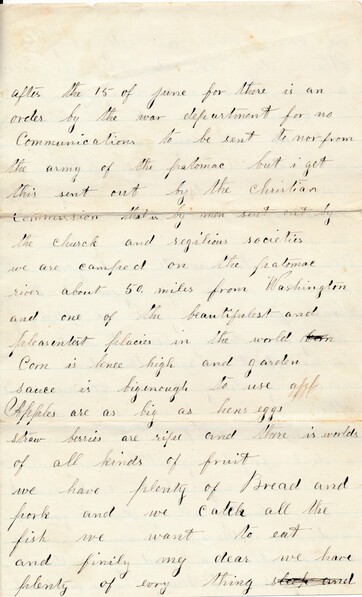 after the 15 of june for there is an
order by the war department for no
Communications to be sent to nor from
the army of the patomac but i get
this sent out by the Christian
Commission that is by men sent out by
the church and regilious societies
we are camped on the patomac
river about 50 miles from Washington
and one of the beautifulest and
pleasentest placies in the world
Corn is knee high and garden
sauce is bigenough to use app
Apples are as big as hens eggs
straw berries are ripe and there is worlds
of all kinds of fruit
we have plenty of Bread and
pork and we catch all the
fish we want to eat
and finily my dear we have
plenty of evry thing and